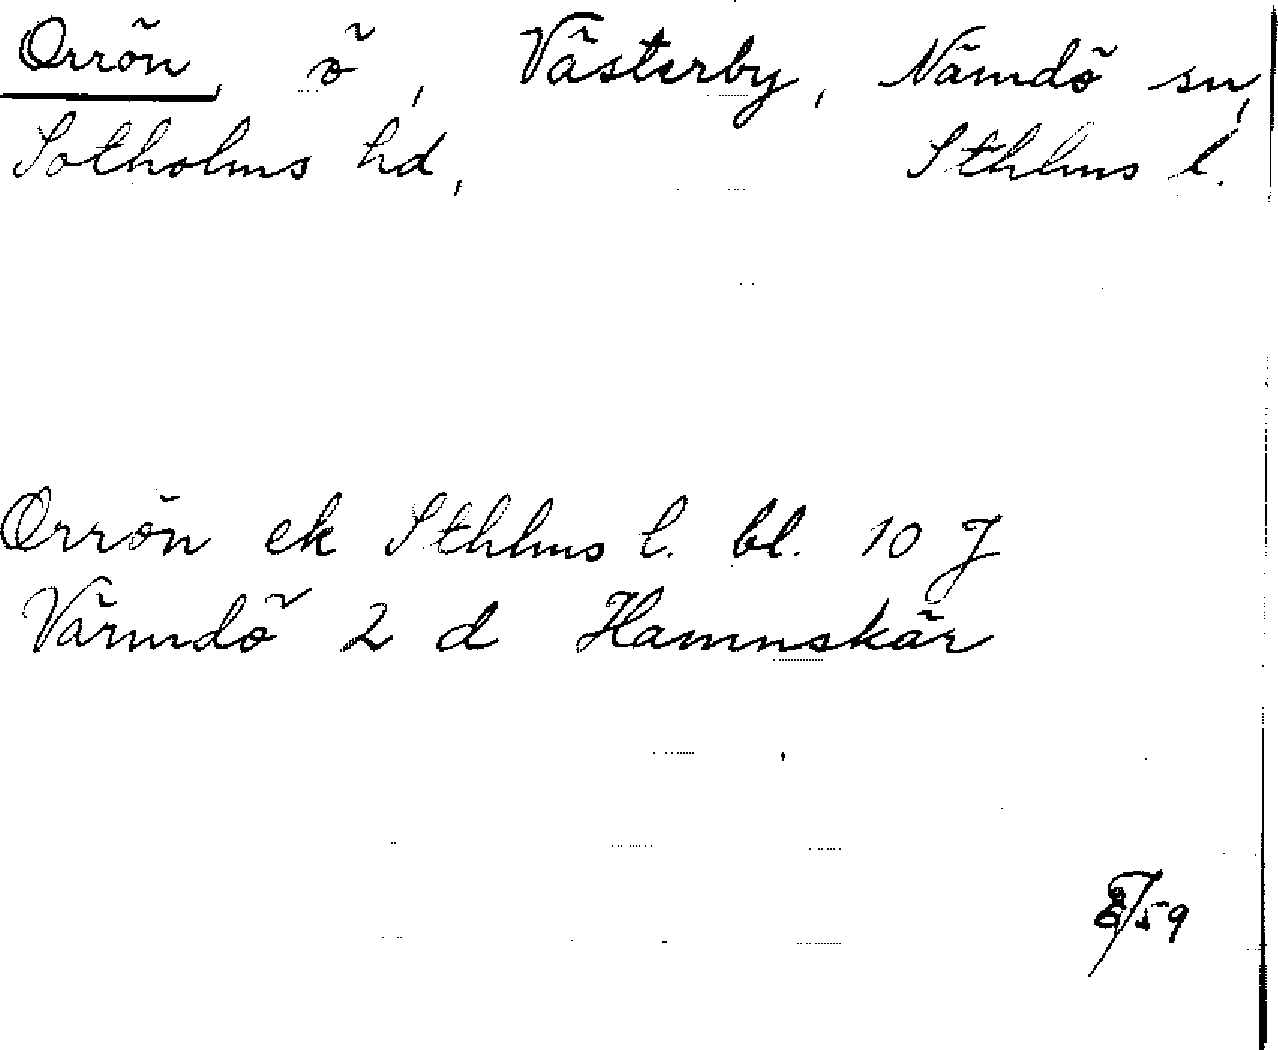 Orrön, ö, Västerby, Nämdö sn,
Sotholms hd, Sthlms l.
Orrön ek Sthlms l. bl. 10 J
Värmdö 2 d Hamnskär
/59